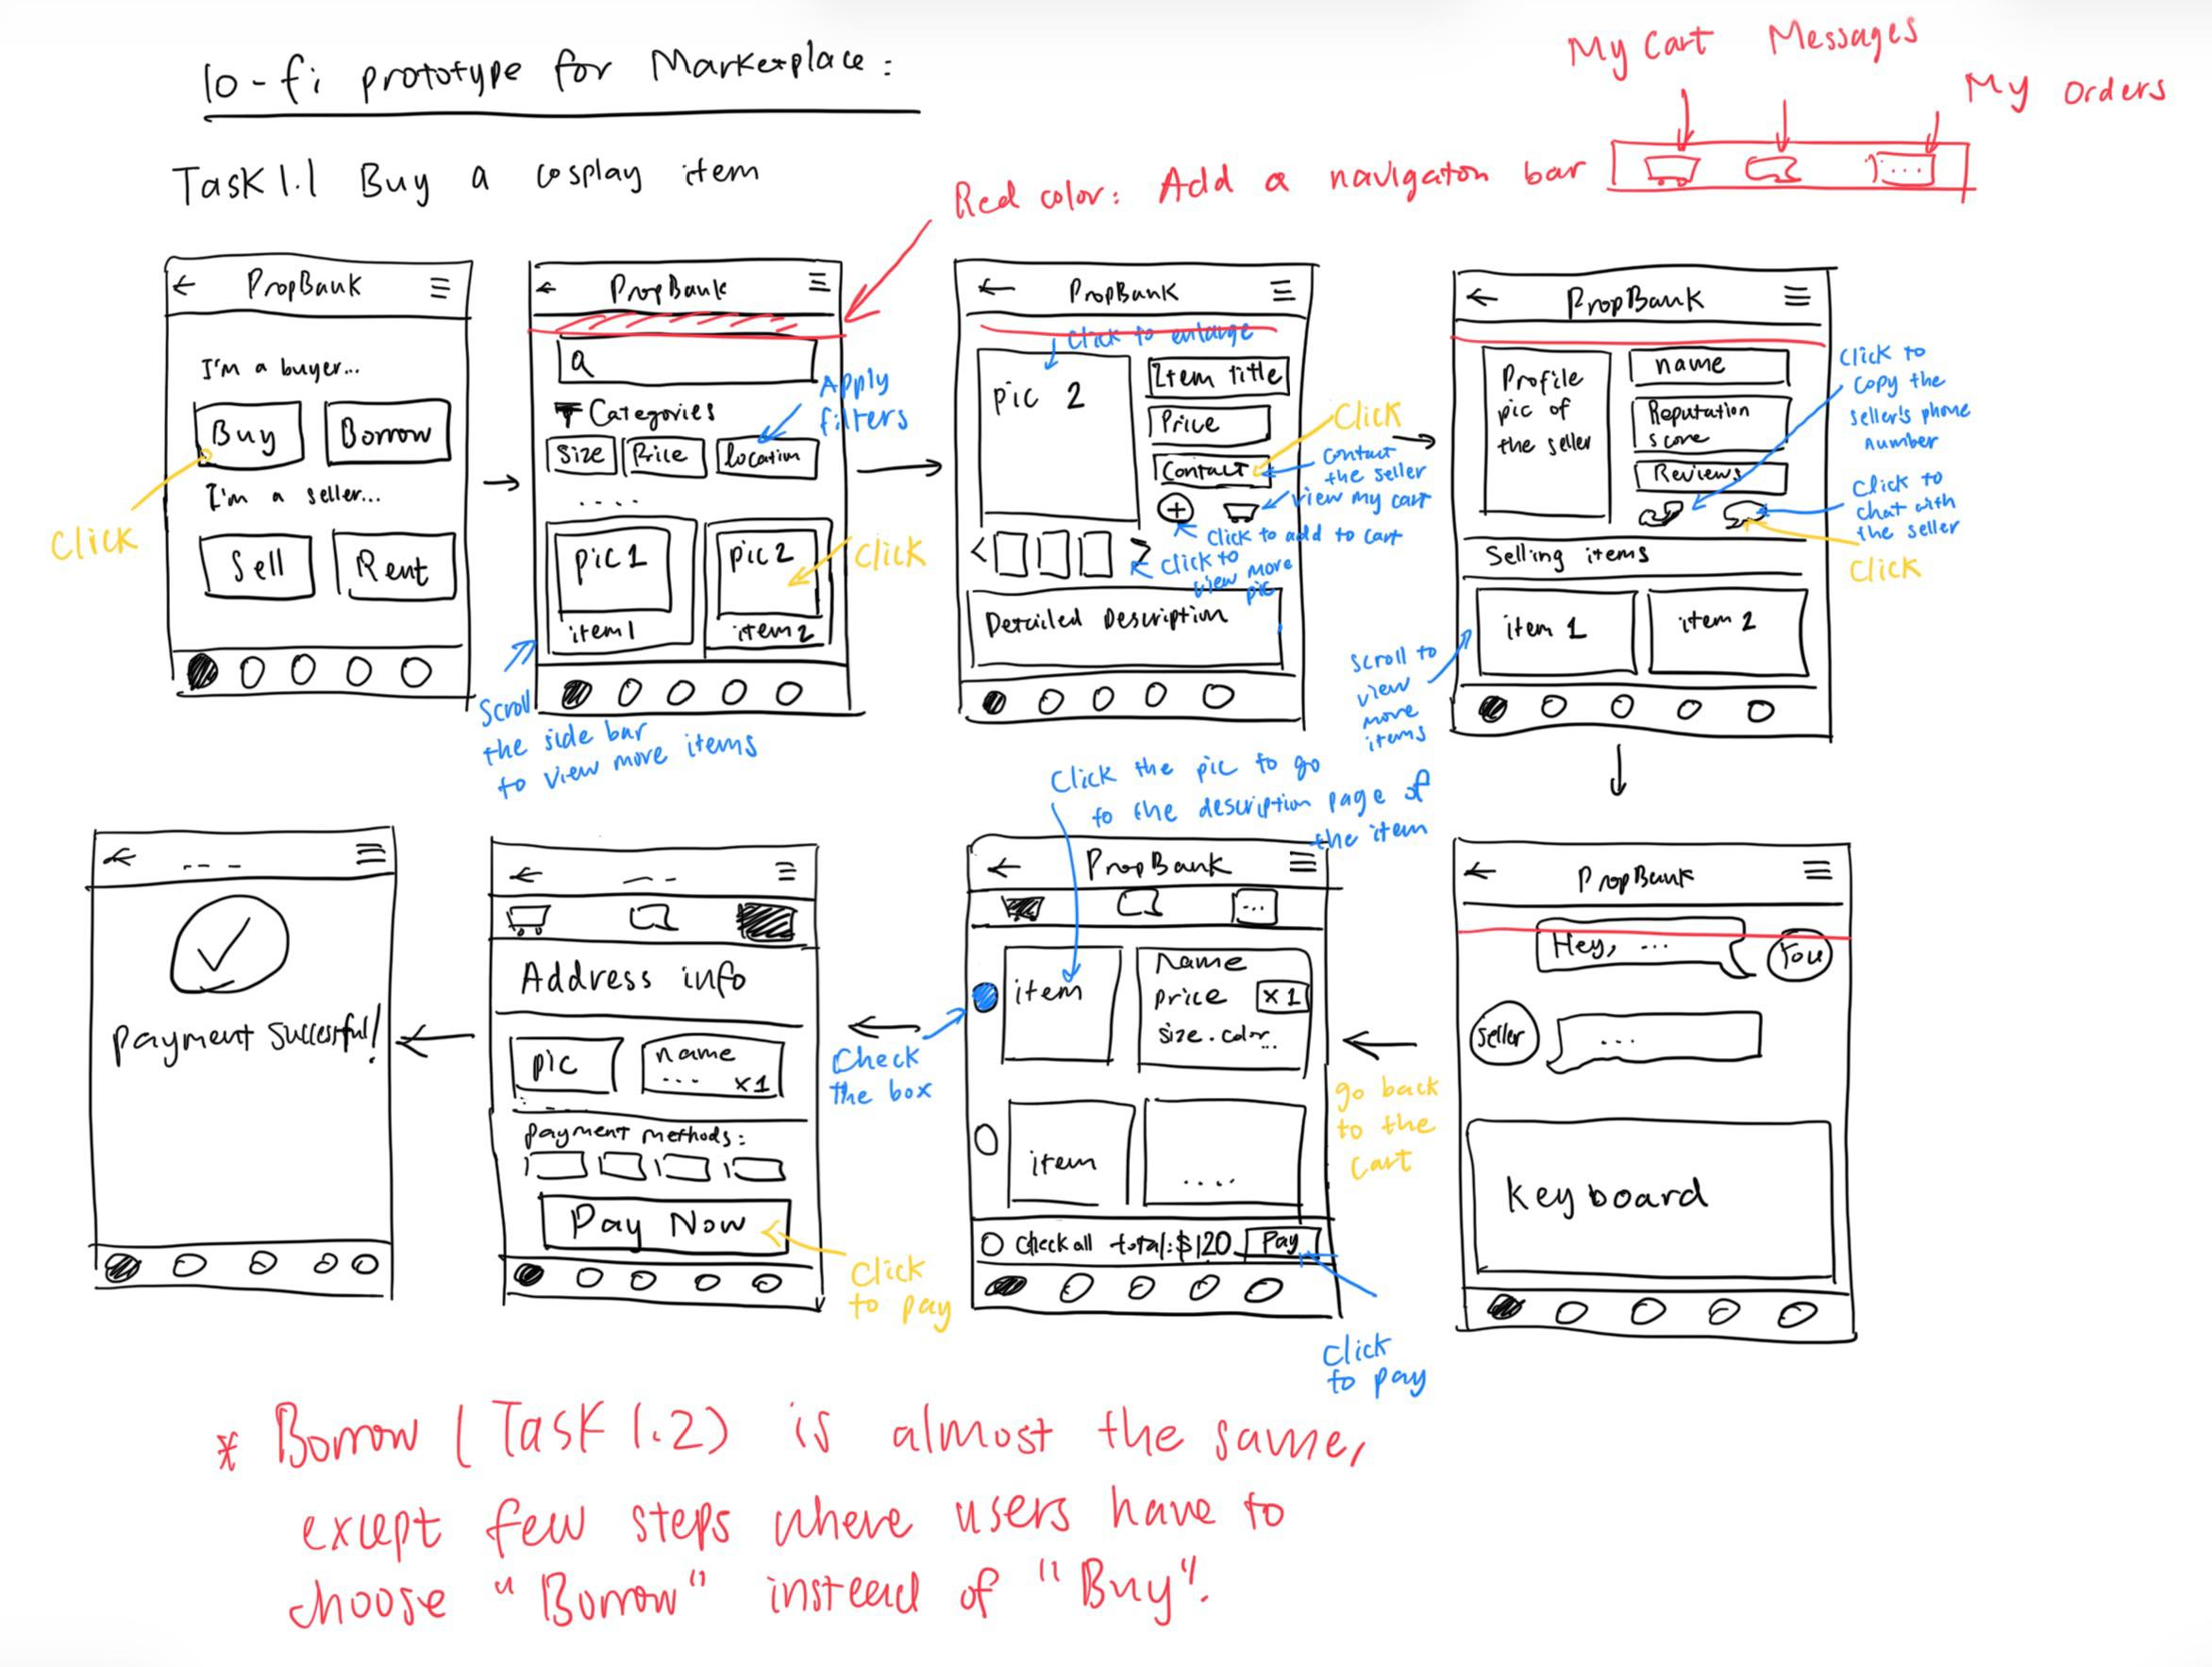 lo-fi prototype for Marketplace:
My Cart Messages
My orders
Task 1.1 Buy a cosplay item
Red color: Add a navigaton bar
...
PropBank
I'm a buyer...
Buy Borrow
I'm a seller...
Sell Rent
Click
PropBank
Q
Categories
Size Price location
....
Apply
filters
pic 1 pic 2
item 1 item 2
Click
Scroll
the side bar
to view more items
PropBank
Click to enlarge
pic 2
Item title
Price
Contact
Click
Contact
the seller
view my cart
Click to add to cart
Click to
view more
pic
Detailed Description
PropBank
Profile
pic of
the seller
name
Reputation
score
Reviews
Click to
copy the
seller's phone
number
Click to
chat with
the seller
Click
Selling items
item 1 item 2
Scroll to
view
more
items
PropBank
Hey, ...
You
Seller
...
Keyboard
go back
to the
cart
Click the pic to go
to the description page of
the item
PropBank
...
item
Name
price x 1
size. color...
item
....
Check all total: $120 Pay
Click
to pay
Check
the box
Address info
pic
name
... x1
payment methods:
Pay Now
Click
to pay
payment successful!
* Borrow (Task 1.2) is almost the same,
except few steps where users have to
choose "Borrow" instead of "Buy".